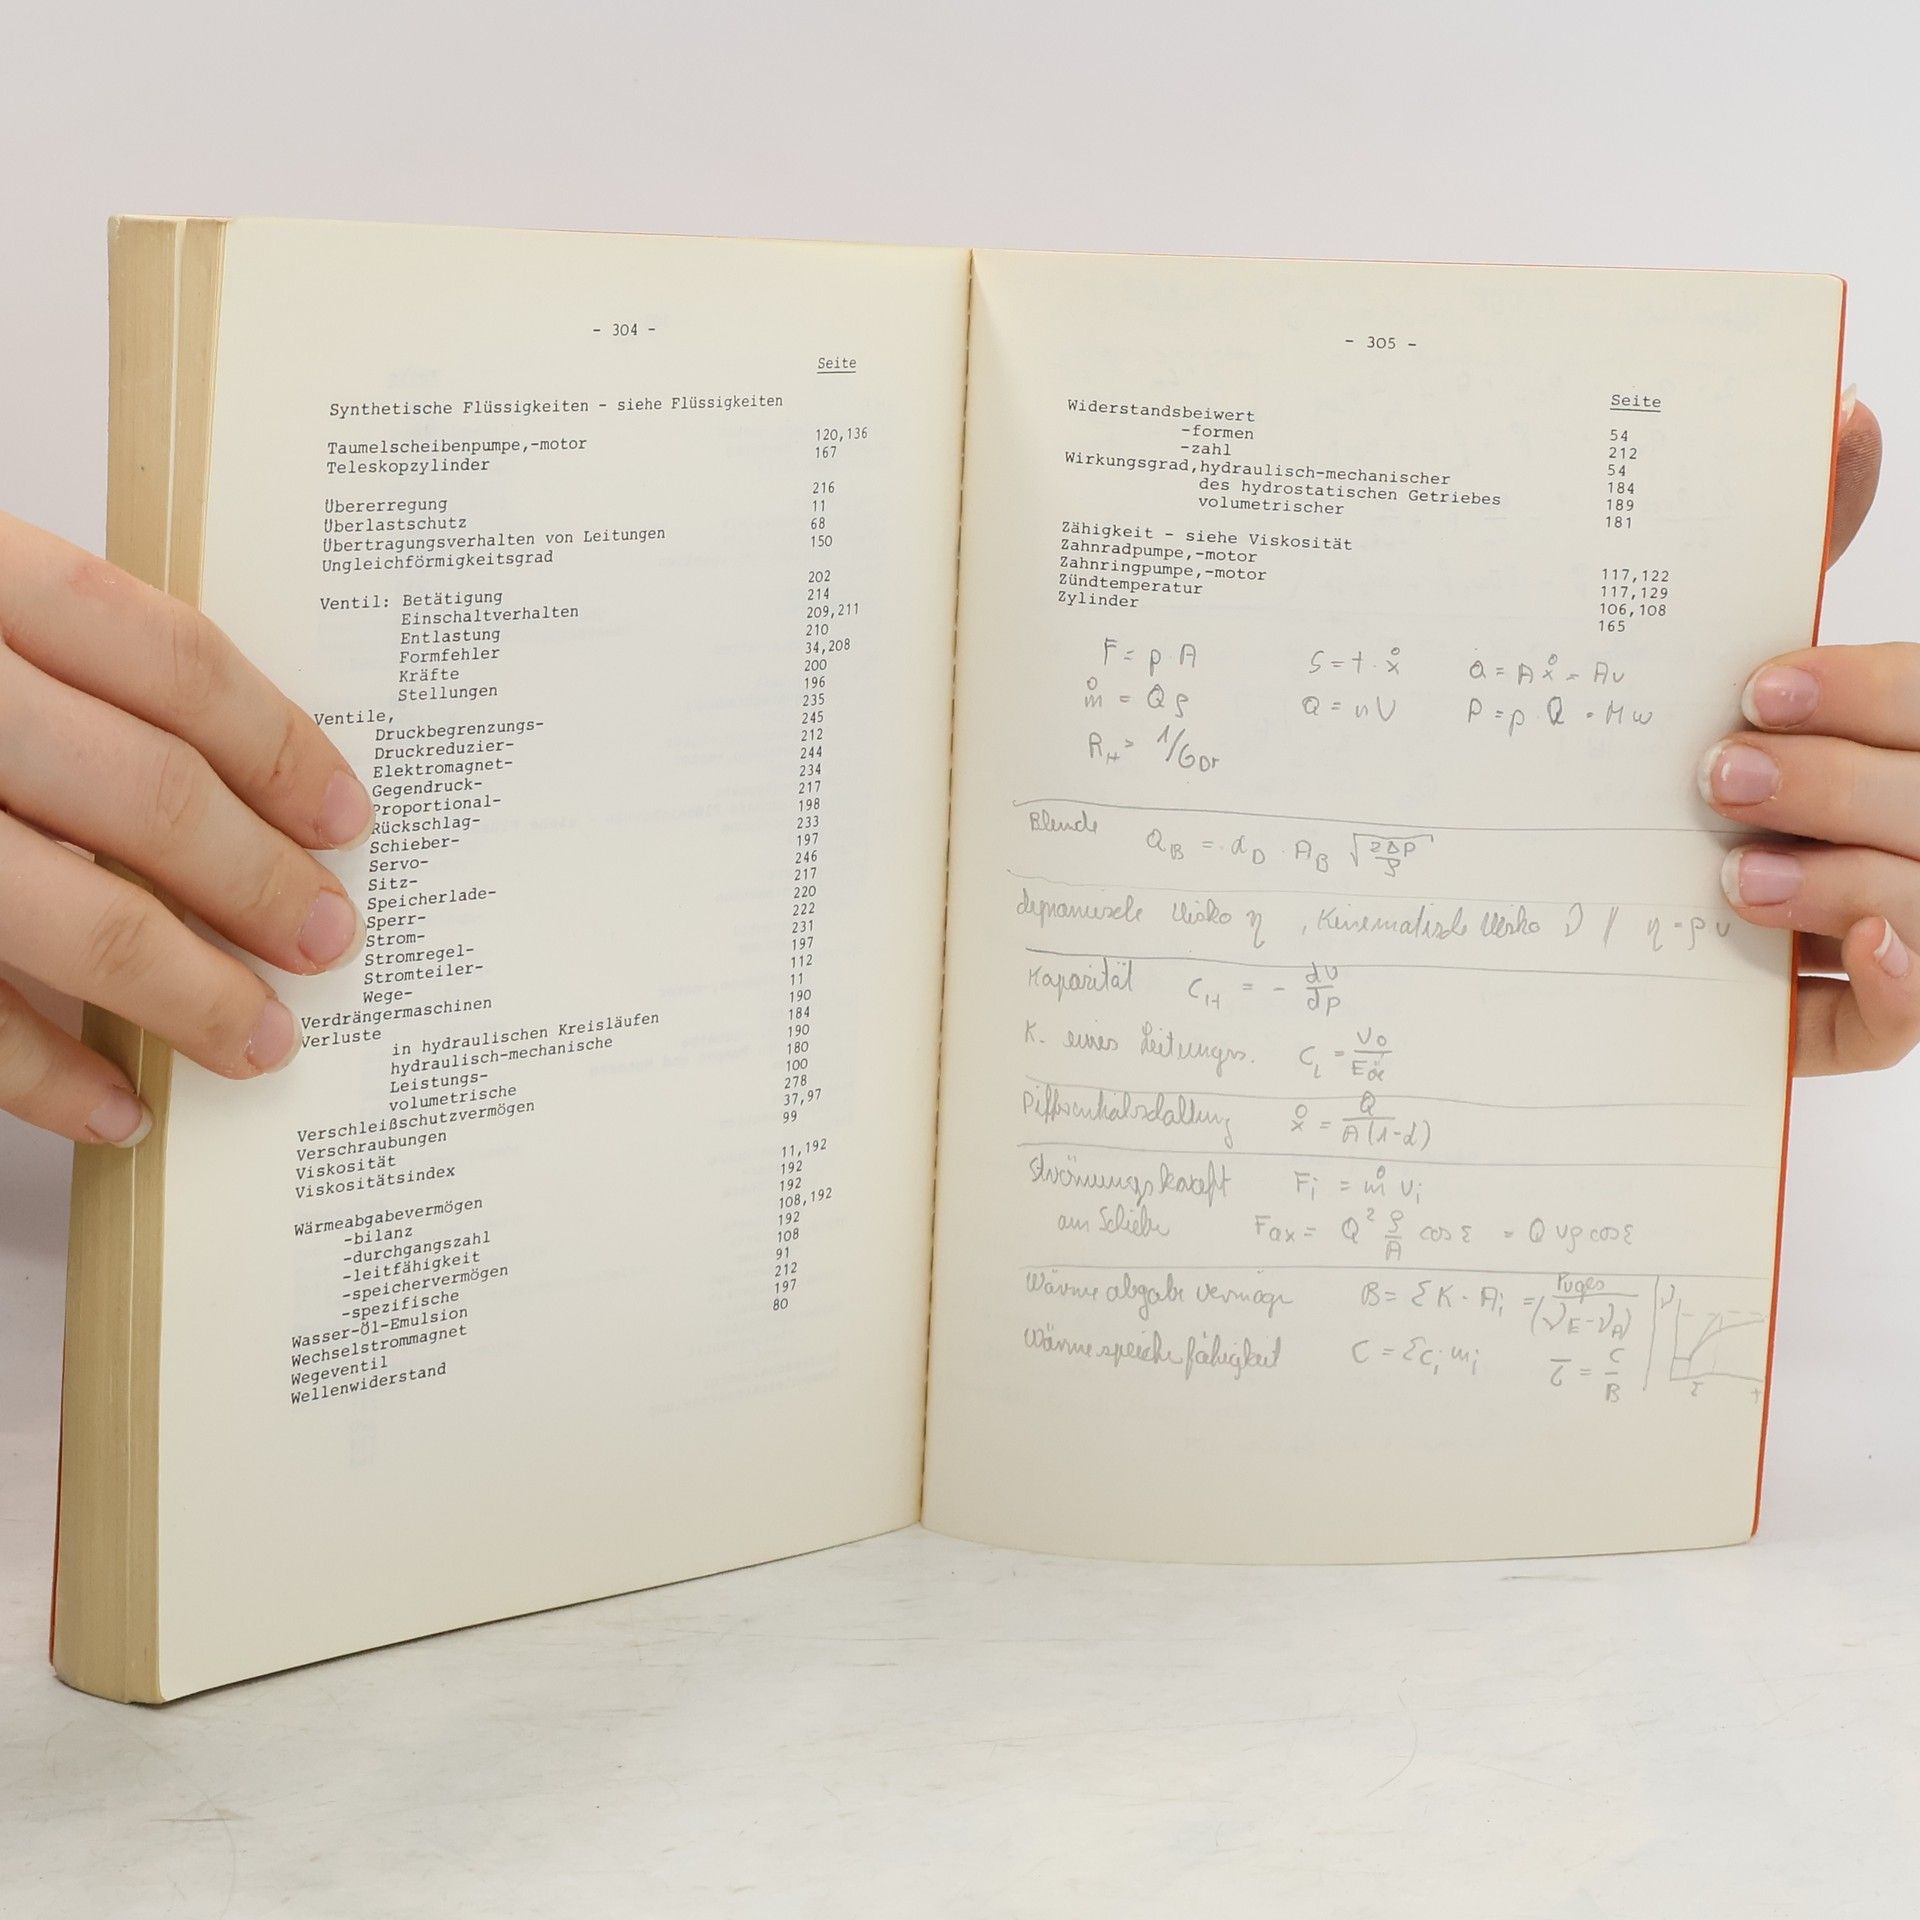 - 304 -
Seite
Synthetische Flüssigkeiten - siehe Flüssigkeiten
Taumelscheibenpumpe,-motor 120,136
Teleskopzylinder 167
Übererregung 216
Überlastschutz 11
Übertragungsverhalten von Leitungen 68
Ungleichförmigkeitsgrad 150
Ventil: Betätigung 202
Einschaltverhalten 214
Entlastung 209,211
Formfehler 210
Kräfte 34,208
Stellungen 200
Ventile, 196
Druckbegrenzungs- 235
Druckreduzier- 245
Elektromagnet- 212
Gegendruck- 244
Proportional- 234
Rückschlag- 217
Schieber- 198
Servo- 233
Sitz- 197
Speicherlade- 246
Sperr- 217
Strom- 220
Stromregel- 222
Stromteiler- 231
Wege- 197
Verdrängermaschinen 112
Verluste 11
in hydraulischen Kreisläufen 190
hydraulisch-mechanische 184
Leistungs- 190
volumetrische 180
Verschleißschutzvermögen 100
Verschraubungen 278
Viskosität 37,97
Viskositätsindex 99
Wärmeabgabevermögen 11,192
-bilanz 192
-durchgangszahl 192
-leitfähigkeit 108,192
-speichervermögen 192
-spezifische 108
Wasser-Öl-Emulsion 91
Wechselstrommagnet 212
Wegeventil 197
Wellenwiderstand 80
- 305 -
Seite
Widerstandsbeiwert 54
-formen 212
-zahl 54
Wirkungsgrad,hydraulisch-mechanischer 184
des hydrostatischen Getriebes 189
volumetrischer 181
Zähigkeit - siehe Viskosität
Zahnradpumpe,-motor 117,122
Zahnringpumpe,-motor 117,129
Zündtemperatur 106,108
Zylinder 165
F = p · A s = t · ẋ Q = A ẋ = A v
ṁ = Q ρ Q = n V P = p · Q = M ω
R_H = 1/G_Dr
Blende Q_B = α_D · A_B √(2Δp/ρ)
dynamische Visko η , Kinematische Visko ν // η = ρ ν
Kapazität C_H = - dV/dp
K. eines Leitungs. C_L = V_0/E_öl
Differentialschaltung ẋ = Q/A(1-α)
Strömungskraft F_i = ṁ v_i
am Schieber F_ax = Q² ρ/A cos ε = Q v ρ cos ε
Wärmeabgabevermöge B = Σ K · A_i = P_vges/(ϑ_E - ϑ_A)
Wärmespeicherfähigkeit C = Σ c_i m_i τ = C/B